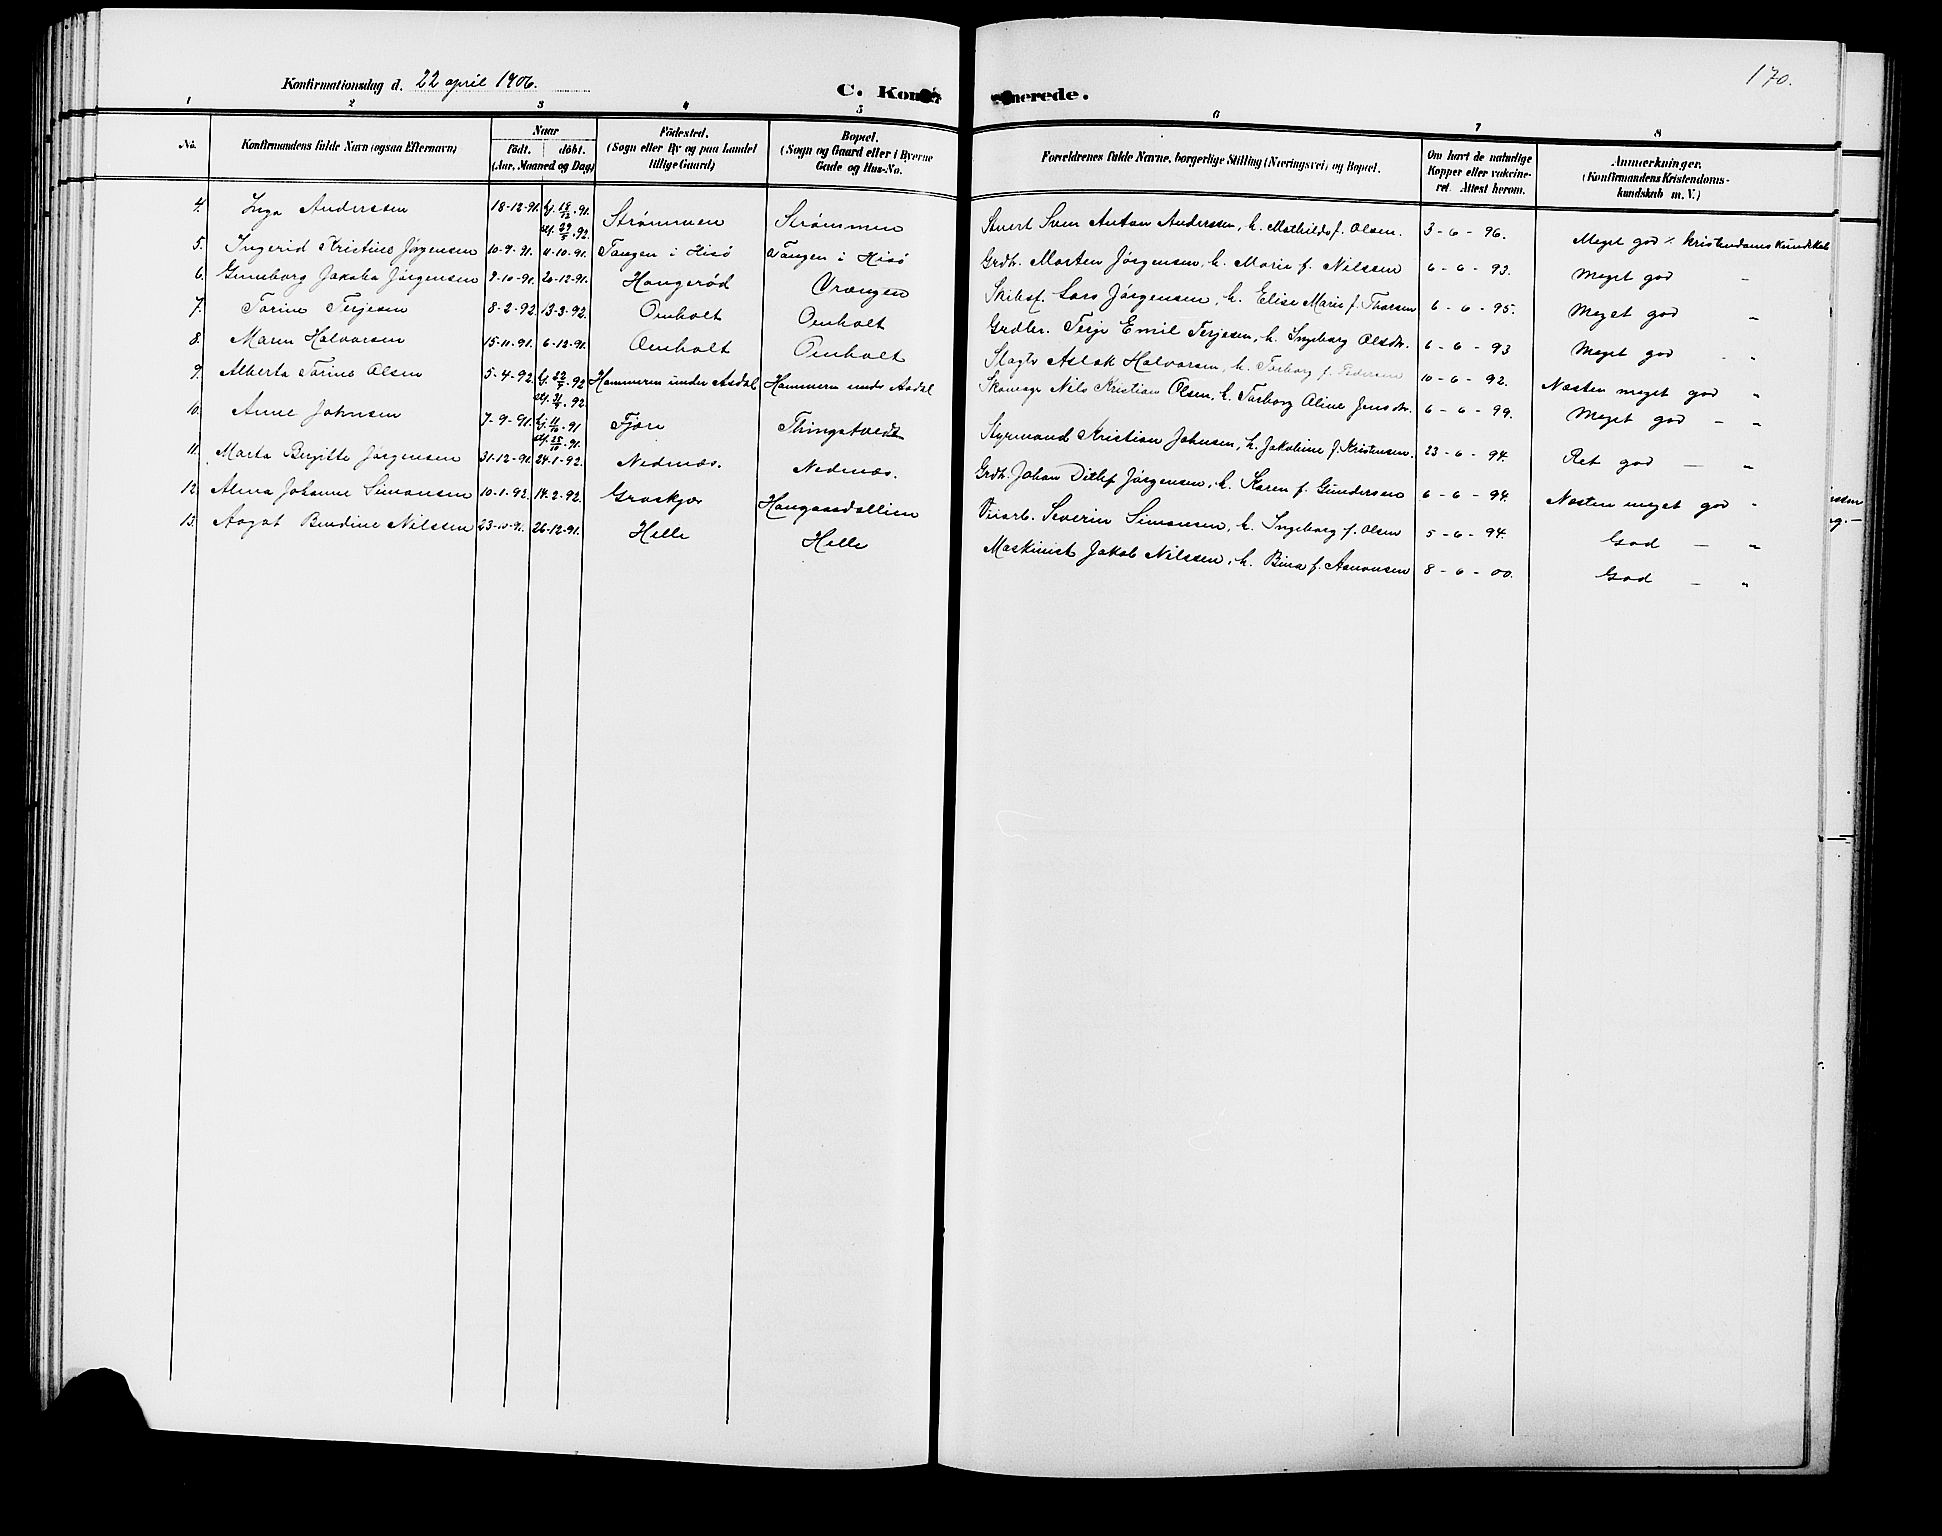 Konfirmationsdag d. 22 april 1906.
C. Konfirmerede.
170.
1 2 3 4 5 6 7 8
No. Konfirmandens fulde Navn (ogsaa Efternavn) Naar født. døbt. (Aar, Maaned og Dag) Fødested. (Sogn eller By og paa Landet tillige Gaard) Bopæl. (Sogn og Gaard eller i Byerne Gade og Hus-No. Forældrenes fulde Navne, borgerlige Stilling (Næringsvei) og Bopæl. Om havt de naturlige Kopper eller vakcineret. Attest herom. Anmerkninger. (Konfirmandens Kristendomskundskab m. V.)
4. Inga Anderssen 18-12-91. hj. 18/12.91. stf. 29/5.92. Strømmen Strømmen Stuert Sven Anton Anderssen, h. Mathilde f. Olsen. 3-6-96. Meget god % kristendomskundskab
5. Ingerid Kristine Jørgensen 10-9-91. 11-10-91. Tangen i Hisø Tangen i Hisø Grdbr. Morten Jörgensen, h. Maria f. Nilssen 6-6-93. Meget god "
6. Gunneborg Jakoba Jörgensen 9-10-91. 26-12-91. Haugerød Vrængen Skibsf. Lars Jörgensen, h. Elise Marie f. Thorsen 6-6-95. Meget god "
7. Torine Terjesen 8-2-92. 13-3-92. Omholt Omholt Grdbr. Terje Emil Terjesen, h. Ingeborg Olsdtr. 6-6-93 Meget god "
8. Maren Halvorsen 15-11-91. 6-12-91. Omholt Omholt Slagter Aslak Halvorsen, h. Torborg f. Pedersen 10-6-92. Næsten meget god "
9. Alberta Torine Olsen 5-4-92. Hammeren under Asdal Hammeren under Asdal Skomagr Nils Kristian Olsen, h. Torborg Aline Jensdtr. 6-6-99. Meget god – "
10. Anne Johnsen 7-9-91. hj. 11/10.91 stf. 25/10.91. Fjære Thingstvedt Styrmand Kristian Johnsen, h. Jakobine f. Kristensen. 23-6-94. Ret god – "
11. Marta Birgitte Jørgensen 31-12-91. 24-1-92. Nednæs. Nednæs. Grdbr. Johan Ditlef Jørgensen, h. Karen f. Gundersen 6-6-94. Næsten meget god "
12. Alma Johanne Simonsen 10-1-92. 14-2-92. Groskjær Haugaasdallien Veiarb. Severin Simonsen, h. Ingeborg f. Olsen 5-6-94. God – "
13. Aagot Bendine Nilssen 23-10-91. 26-12-91. Helle Helle Maskinist Jakob Nilssen, h. Bina f. Aanonsen 8-6-00. God – "